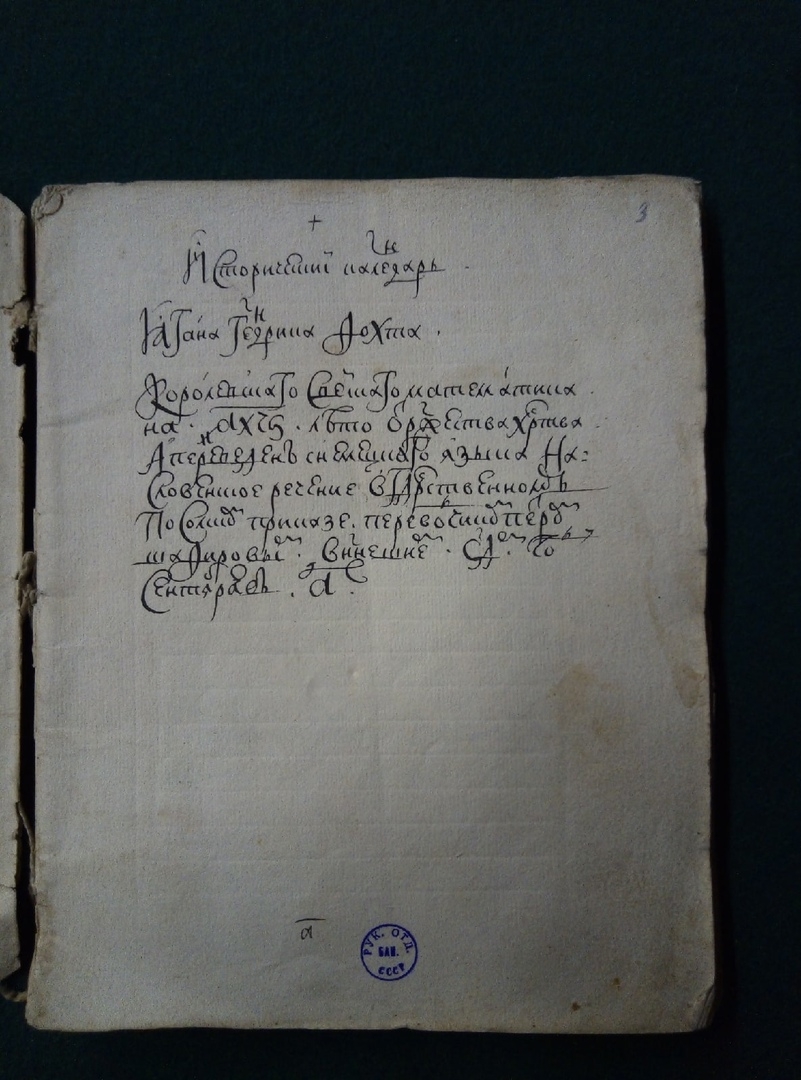 3
+
Исторически календарь
Ягана Генрика Фохта
Королевскаго Свейскаго математика
на · ахч҃ѕ · лѣто ѿ ржⷭ҇ества хрⷭ҇това
А переведенъ с немецкаго языка На=
Словенское речение в Гдⷭ҇рственномъ
Посолском приказе. переводчиком петром
Шафировым · в нн҃ешнем · сд҃ · м году
Сентября въ · а҃ ·
а҃
РУК. ОТД.
БАН.
СССР